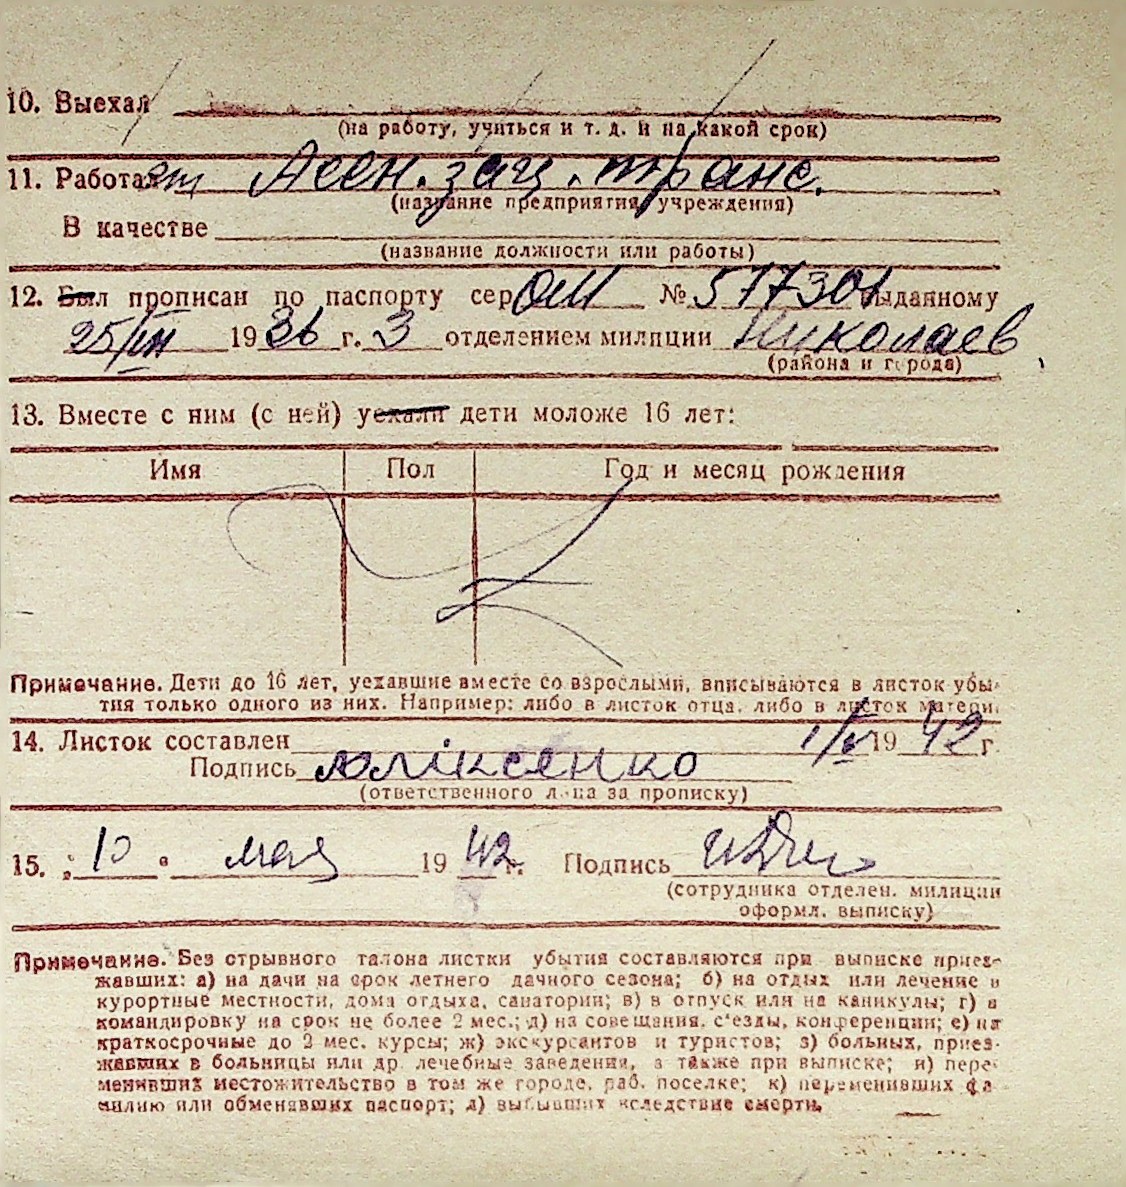 10. Выехал
(на работу, учиться и т. д. и на какой срок)
11. Работает Асен. зag. транс.
(название предприятия, учреждения)
В качестве
(название должности или работы)
12. Был прописан по паспорту сер ОМ № 577301 выданному
25/VII 1936 г. 3 отделением милиции Николаев
(района и города)
13. Вместе с ним (с ней) уехали дети моложе 16 лет:
Имя Пол Год и месяц рождения
Примечание. Дети до 16 лет, уехавшие вместе со взрослыми, вписываются в листок убы-
тия только одного из них. Например: либо в листок отца, либо в листок матери.
14. Листок составлен 1/V 1942 г.
Подпись
(ответственного лица за прописку)
15. „10" мая 1942 г. Подпись
(сотрудника отделен. милиции
оформл. выписку)
Примечание. Без отрывного талона листки убытия составляются при выписке приез-
жавших: а) на дачи на срок летнего дачного сезона; б) на отдых или лечение в
курортные местности, дома отдыха, санатории; в) в отпуск или на каникулы; г) в
командировку на срок не более 2 мес.; д) на совещания, с'езды, конференции; е) на
краткосрочные до 2 мес. курсы; ж) экскурсантов и туристов; з) больных, приез-
жавших в больницы или др. лечебные заведения, а также при выписке; и) пере-
менивших местожительство в том же городе, раб. поселке; к) переменивших фа-
милию или обменявших паспорт; л) выбывших вследствие смерти.